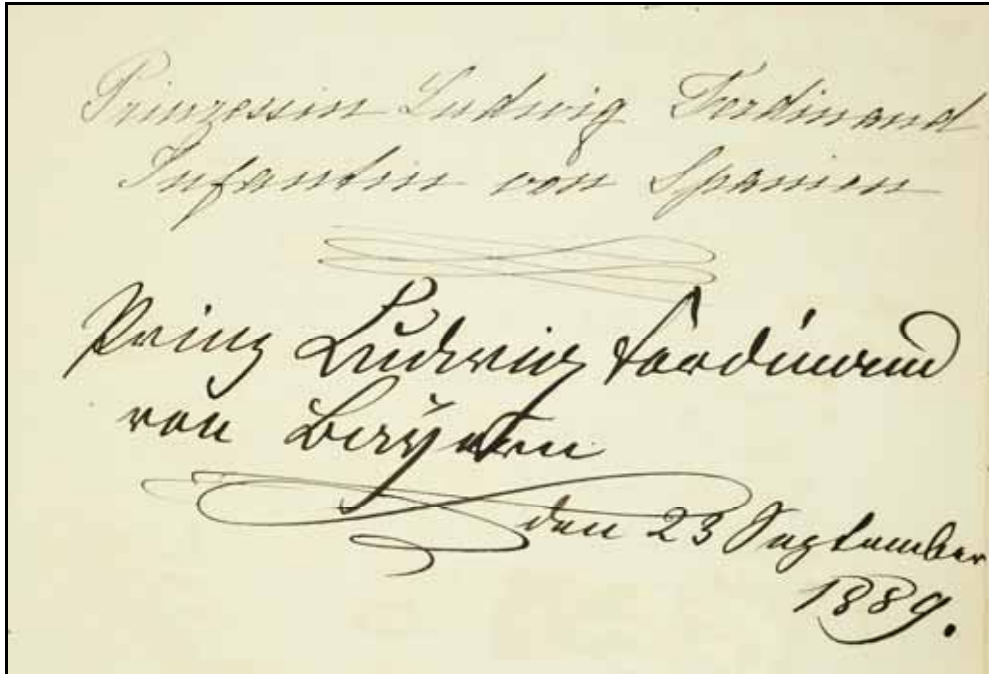 Prinzessin Ludwig Ferdinand
Infantin von Spanien
Prinz Ludwig Ferdinand
von Bayern
den 23 September
1889.